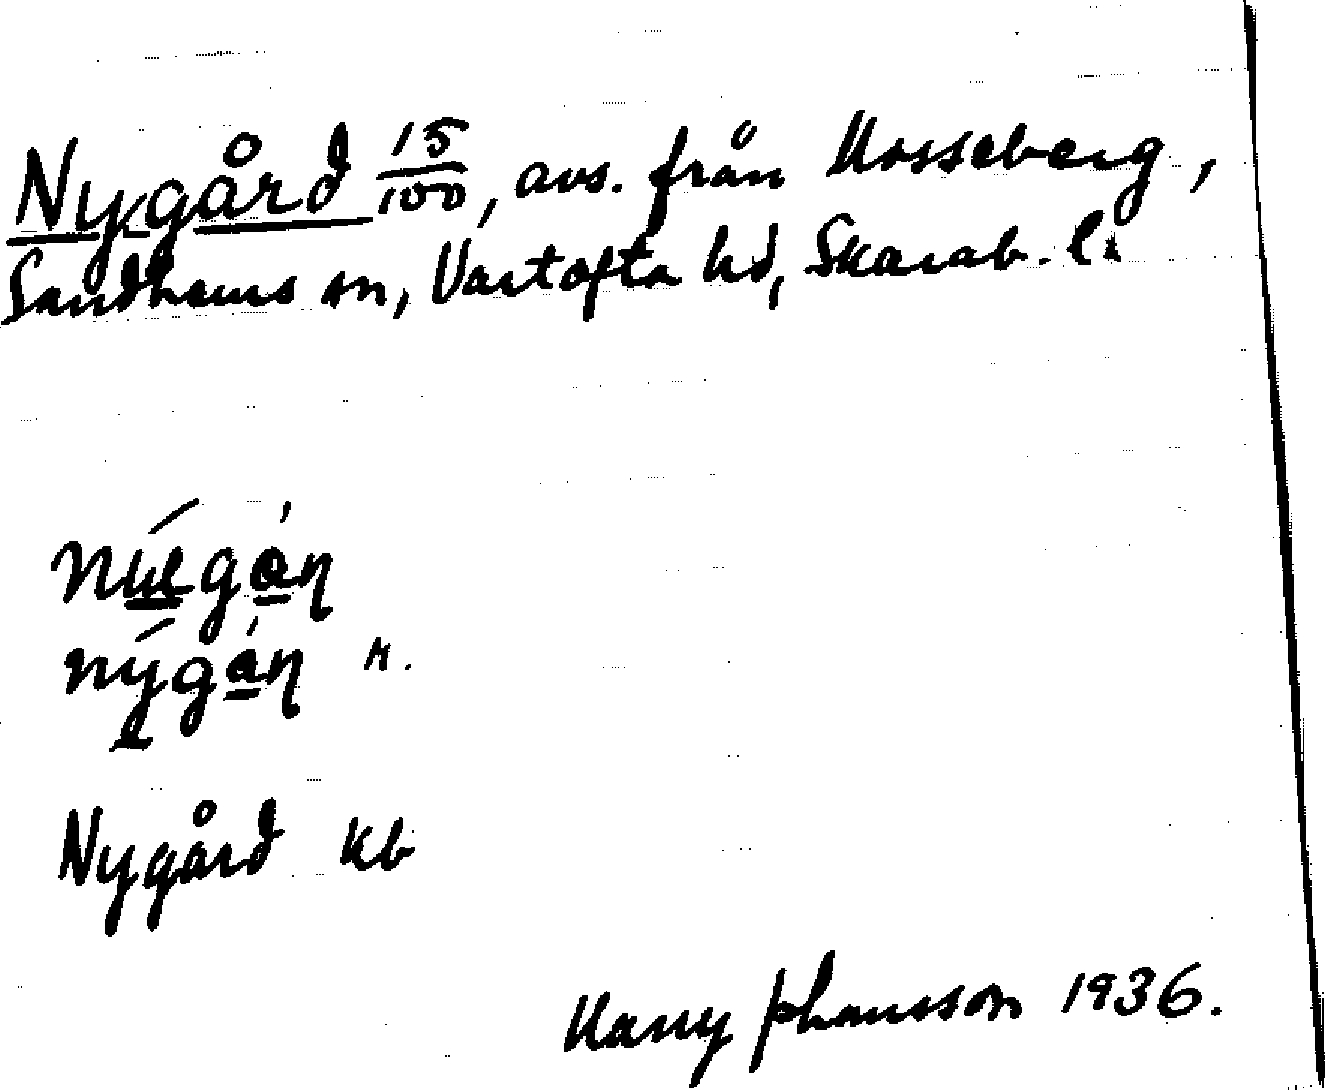 Nygård 15/100, avs. från Mosseberg,
Sandhems sn, Vartofta hd, Skarab. l.
nygaɳ n.
Nygård kb
Harry Johansson 1936.